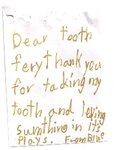 Dear tooth
fery thank you
for tacking my
tooth and leving
sumthing in its
plays. From